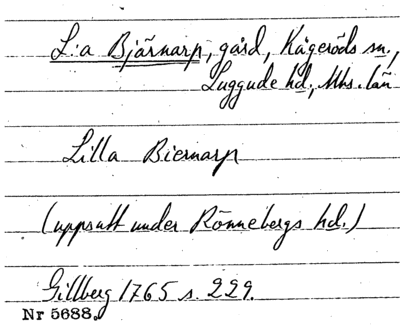 L:a Bjärnarp, gård, Kågeröds sn.,
Luggude hd., Mhs. län
Lilla Biernarp
(uppsatt under Rönnebergs hd.)
Gillberg 1765 s. 229.
Nr 5688.